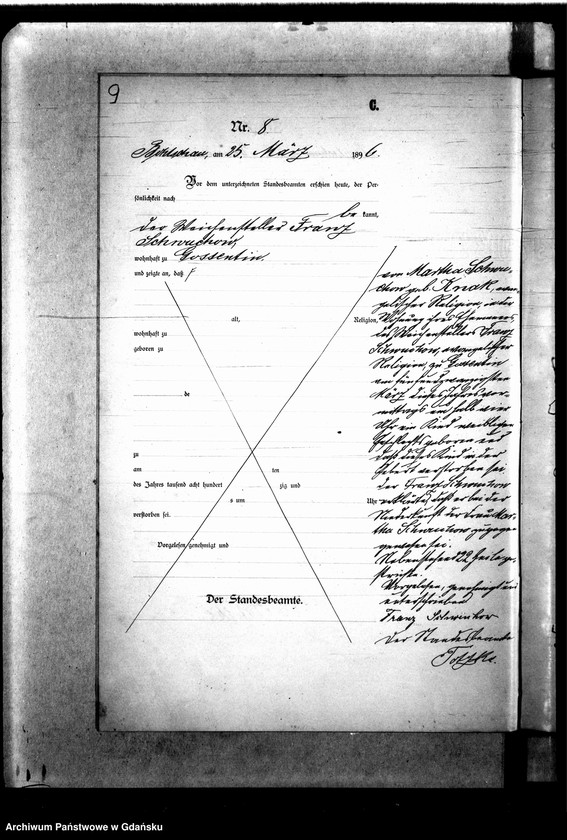 9
C.
Nr. 8
Bohlschau, am 25. März 1896.
Vor dem unterzeichneten Standesbeamten erschien heute, der Per-
sönlichkeit nach
be kannt,
der Weichensteller Franz
Schwuchow,
wohnhaft zu Gossentin
und zeigte an, daß
alt, Religion,
wohnhaft zu
geboren zu
de
zu
am ten
des Jahres tausend acht hundert zig und
s um Uhr
verstorben sei.
Vorgelesen, genehmigt und
Der Standesbeamte.
von Martha Schwu-
chow geb. Knak, evan-
gelischer Religion, in der
Wohnung ihres Ehemannes
des Weichenstellers Franz
Schwuchow, evangelischer
Religion, zu Gossentin
am fünfundzwanzigsten
März dieses Jahres vor-
mittags um halb vier
Uhr ein Kind weiblichen
Geschlechts geboren und
daß dieses Kind in der
Geburt verstorben sei.
der Franz Schwuchow
erklärte, daß er bei der
Niederkunft der Frau Mar-
tha Schwuchow zugegen
gewesen sei.
Nebenstehend 22
Vorgelesen, genehmigt und
unterschrieben
Franz Schwuchow
Der Standesbeamte
Archiwum Państwowe w Gdańsku